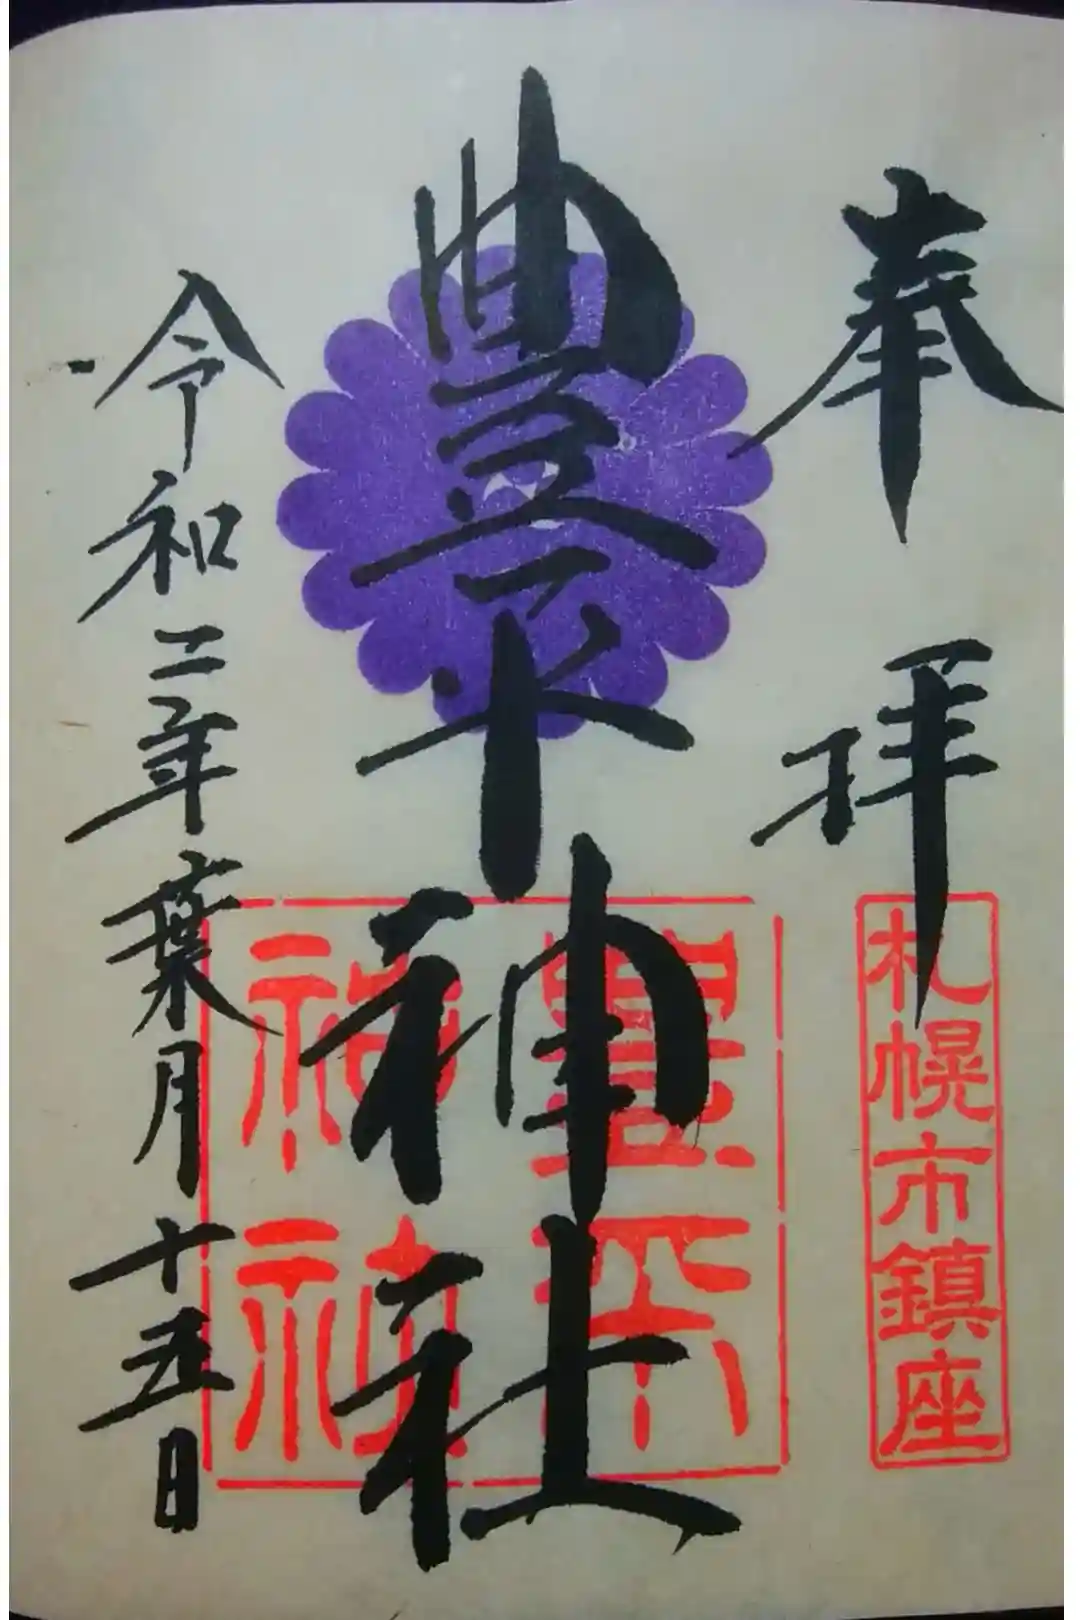 奉拝
札幌市鎮座
豊平神社
豊平
神社
令和二年葉月十五日